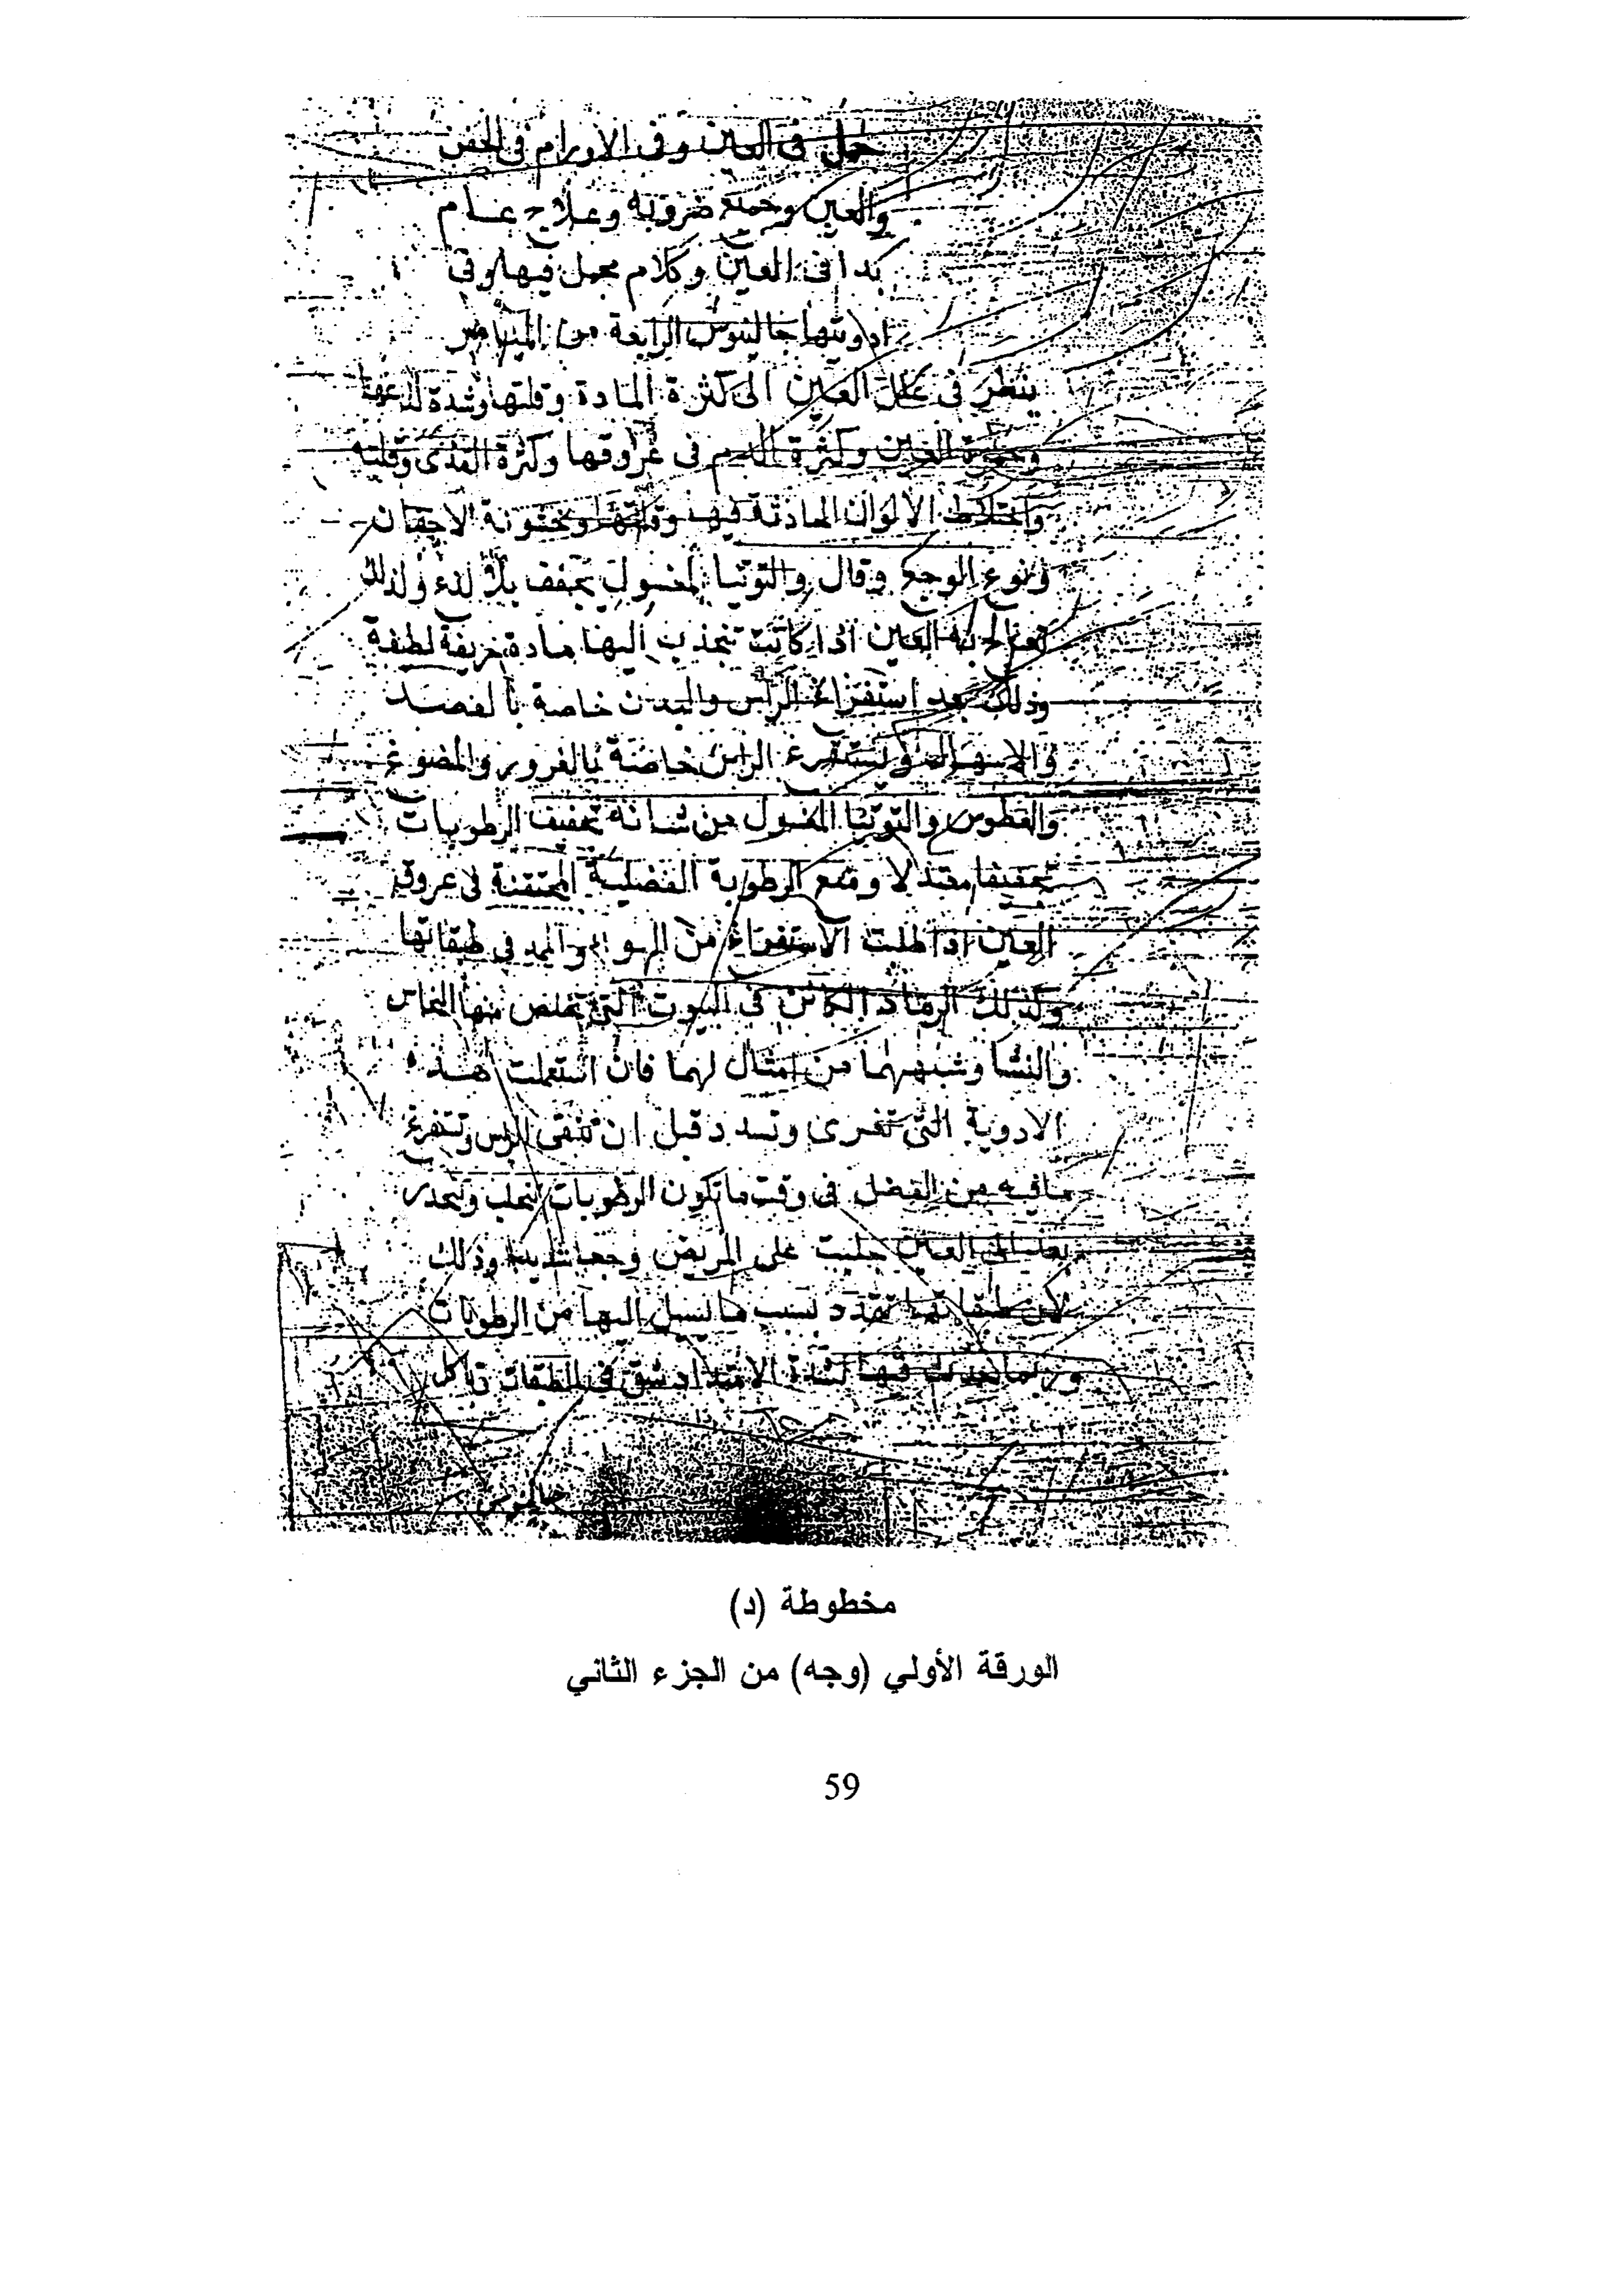 جمل في العين وفي الاورام في الجفن
والعين وجميع ضروبه وعلاج عام
في العين وكلام مجمل فيها وفي
ادويتها جالينوس الرابعة من الميامر
ينظر في علل العين الى كثرة المادة وقلتها وشدة لذعها
وحمرة العين وكثرة الدم في عروقها وكثرة القذى وقلته
واختلاط الالوان الحادثة فيها وقلتها وخشونة الاجفان
ونوع الوجع وقال والتوتيا المغسول يجفف بلا لذع ولذلك
تعالج به العين اذا كانت تنجذب اليها مادة حريفة لطيفة
وذلك بعد استفراغ الراس والبدن خاصة بالفصد
والاسهال ويستفرغ الراس خاصة بالغرور والمضوغ
والعطوس والتوتيا المغسول من شانه تجفيف الرطوبات
تجفيفا معتدلا ومنع الرطوبة الفضلية المحتقنة في عروق
العين اذا طلبت الاستفراغ من في طبقاتها
وكذلك الرماد الكائن في البيوت التي تخلص فيها النحاس
والنشا وشبههما من امثال لهما فان استعملت هذه
الادوية التي تغرى وتسدد قبل ان تنقى الراس وتستفرغ
مافيه من الفضل في وقت ما تكون الرطوبات تتحلب وتنحدر
بعد الى العين جلبت على المريض وجعا شديدا وذلك
لان طبقاتها تمدد بسبب ما يسيل اليها من الرطوبات
وربما حدث فيها لشدة الامتداد شق في الطبقات تاكل
جالينوس
مخطوطة (د)
الورقة الأولي (وجه) من الجزء الثاني
59